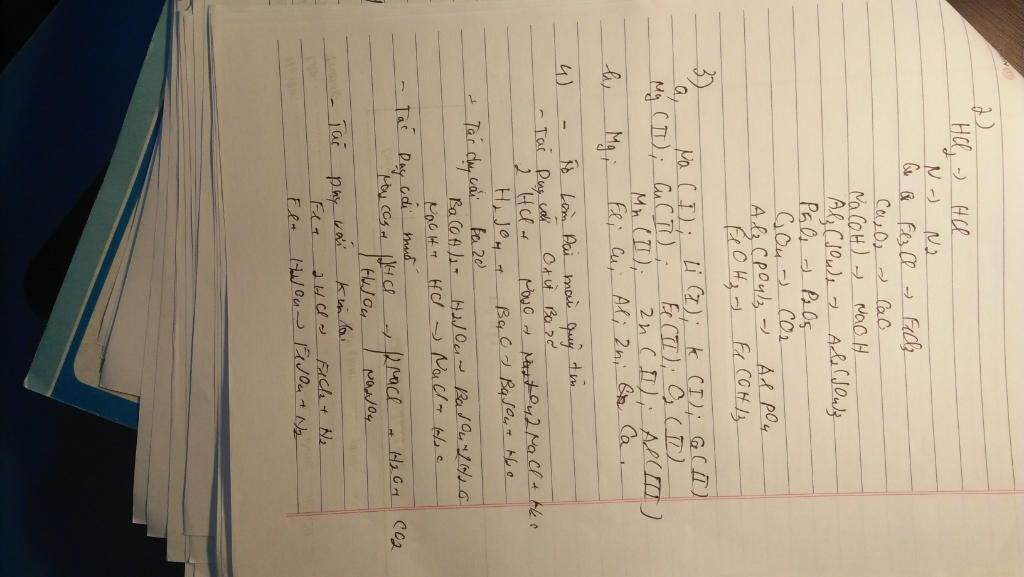 2)
HCl₂ → HCl
N → N₂
Fe₃Cl → FeCl₃
Ca₂O₂ → CaO
Na(OH) → NaOH
Al₃(SO₄)₂ → Al₂(SO₄)₃
P₅O₂ → P₂O₅
→ CO₂
Al₃(PO₄)₃ → AlPO₄
FeOH₃ → Fe(OH)₃
3)
a, Na (I); Li (I); K (I); Ca (II)
Mg (II); Cu (II); Fe (II); (II)
Mn (II); Zn (II); Al (III)
b, Mg; Fe; Cu; Al; Zn; Ca.
4) - Làm đổi màu quỳ tím
- Tác dụng với Oxit Bazơ
2 HCl + Na₂O → 2 NaCl + H₂O
H₂SO₄ + BaO → BaSO₄ + H₂O
+ Tác dụng với Bazơ
Ba(OH)₂ + H₂SO₄ → BaSO₄ + 2H₂O
NaOH + HCl → NaCl + H₂O
- Tác dụng với muối
Na₂CO₃ + 2HCl → 2NaCl + H₂O + CO₂
H₂SO₄ Na₂SO₄
- Tác dụng với kim loại
Fe + 2HCl → FeCl₂ + H₂
Fe + H₂SO₄ → FeSO₄ + H₂